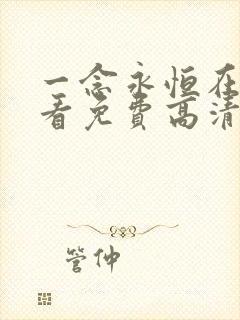 一念永恒在
看免费高清
管仲